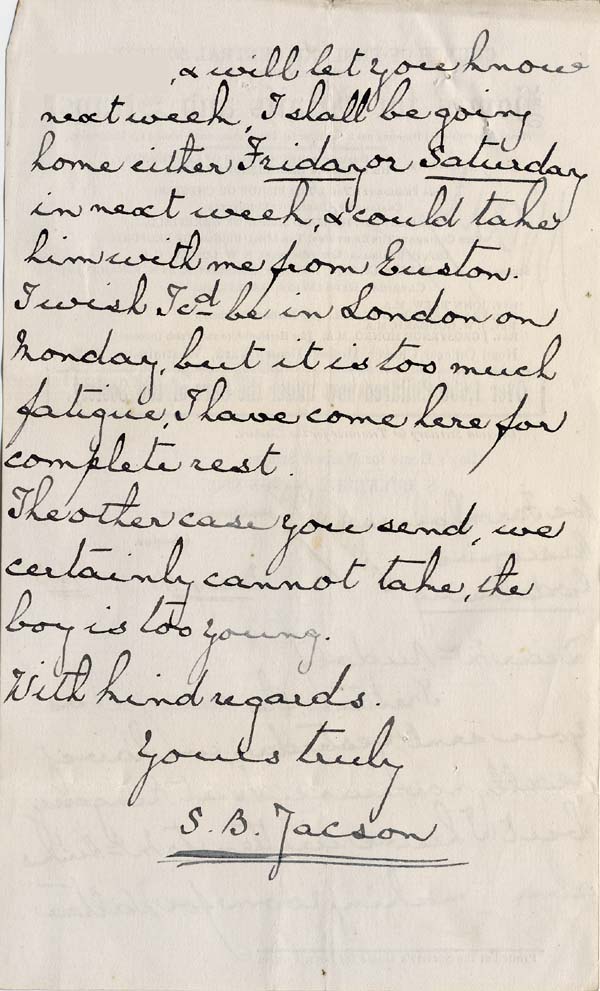 , & will let you know
next week, I shall be going
home either Friday or Saturday
in next week, & could take
him with me from Euston.
I wish I cd be in London on
Monday, but it is too much
fatigue, I have come here for
complete rest.
The other case you send, we
certainly cannot take, the
boy is too young.
With kind regards.
Yours truly
S. B. Jacson